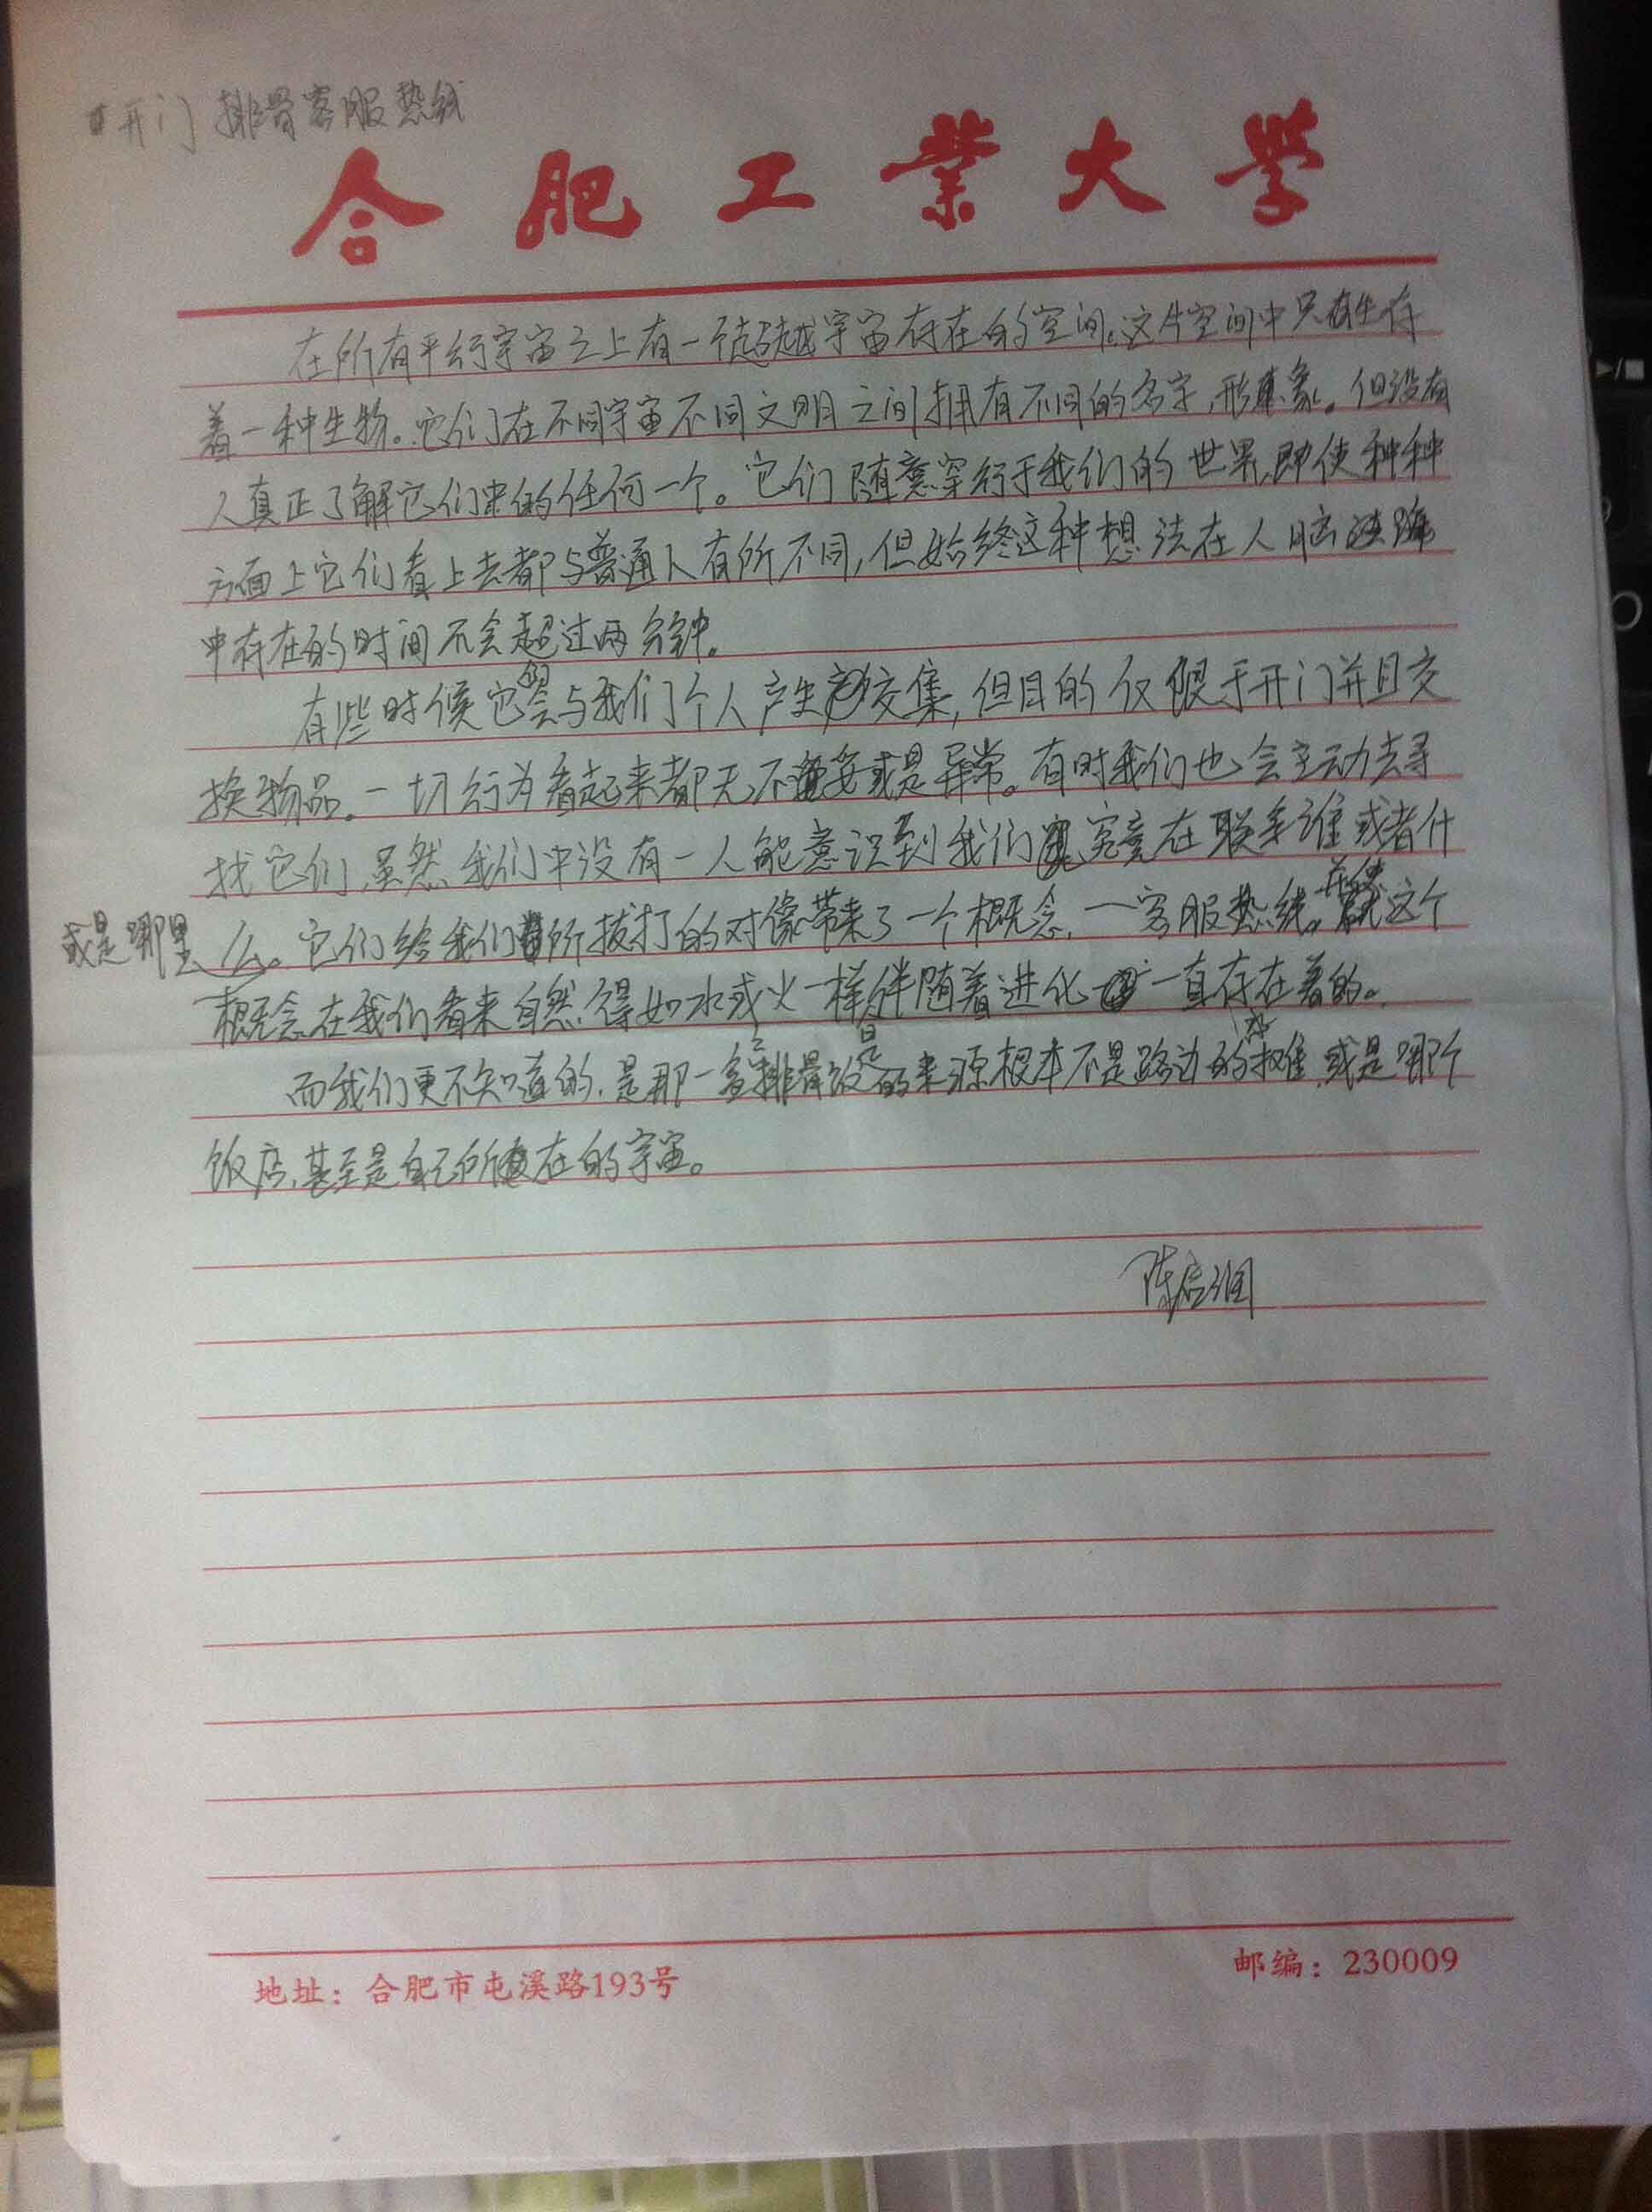 开门 排骨客服热线
合肥工業大学
在所有平行宇宙之上有一个超越宇宙存在的空间。这片空间中只有生存
着一种生物。它们在不同宇宙不同文明之间拥有不同的名字,形象。但没有
人真正了解它们中的任何一个。它们随意穿行于我们的世界,即使种种
方面上它们看上去都与普通人有所不同,但始终这种想法在人脑
中存在的时间不会超过两分钟。
有些时候它们会与我们个人产生交集,但目的仅限于开门并且交
换物品。一切行为看起来都无不妥或是异常。有时我们也会主动去寻
找它们,虽然我们中没有一人能意识到我们究竟在联系谁或者什
么或是哪里。它们给我们所拔打的对像带来了一个概念,一客服热线。并使这个
概念在我们看来自然得如水或火一样伴随着进化一直存在着的。
而我们更不知道的,是那一份排骨饭的来源根本不是路边的摊,或是哪个
饭店,甚至是自己所在的宇宙。
地址：合肥市屯溪路193号
邮编：230009